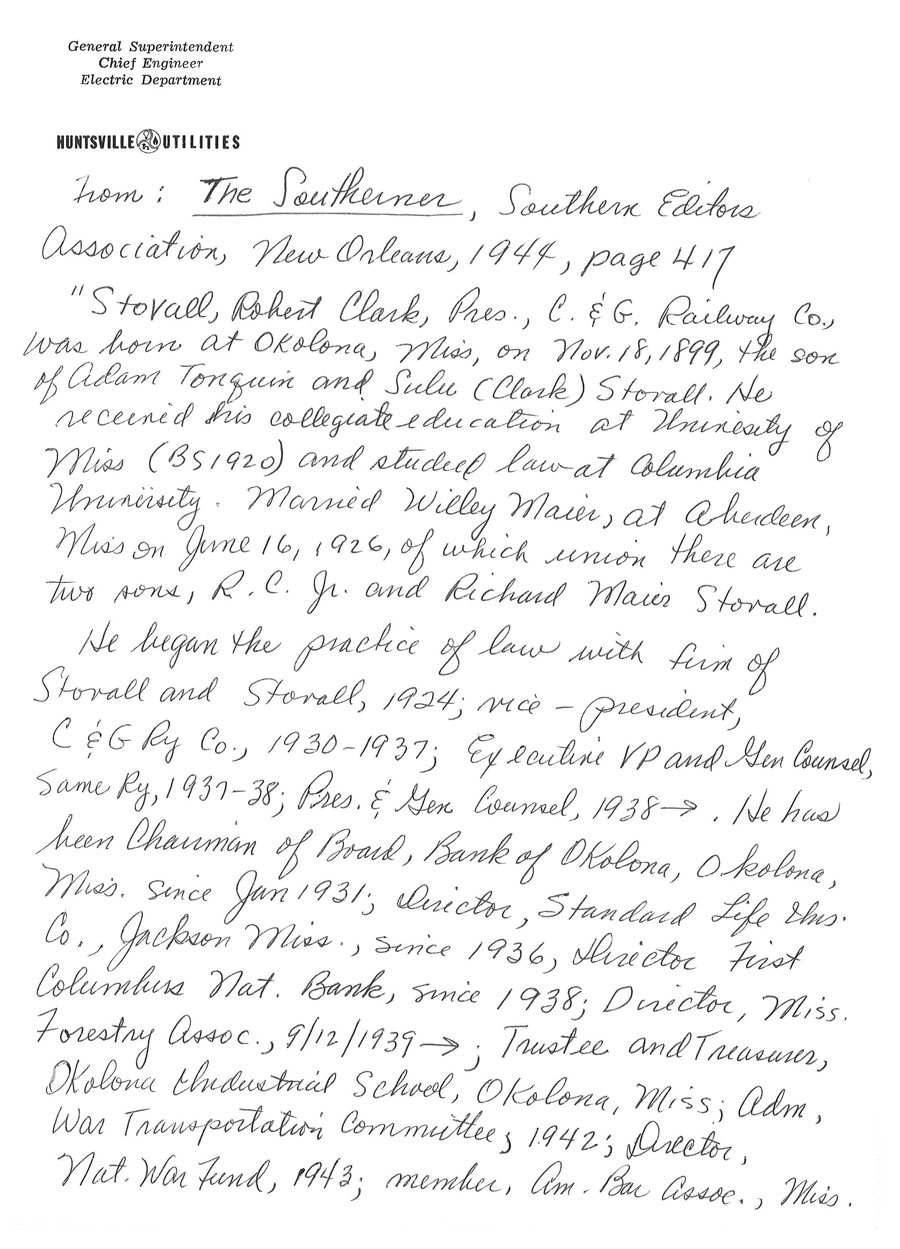 General Superintendent
Chief Engineer
Electric Department
HUNTSVILLE UTILITIES
From: The Southerner, Southern Editors
Association, New Orleans, 1944, page 417
"Stovall, Robert Clark, Pres., C. & G. Railway Co.,
was born at Okolona, Miss, on Nov. 18, 1899, the son
of Adam Tonquin and Sulu (Clark) Stovall. He
received his collegiate education at University of
Miss (BS1920) and studied law at Columbia
University. Married Willey Maier, at Aberdeen,
Miss on June 16, 1926, of which union there are
two sons, R. C. Jr. and Richard Maier Stovall.
He began the practice of law with firm of
Stovall and Stovall, 1924; vice-president,
C & G Ry Co., 1930-1937; Executive VP and Gen Counsel,
Same Ry, 1937-38; Pres. & Gen Counsel, 1938→. He has
been Chairman of Board, Bank of Okolona, Okolona,
Miss. since Jan 1931; Director, Standard Life Ins.
Co., Jackson Miss., since 1936, Director First
Columbus Nat. Bank, since 1938; Director, Miss.
Forestry Assoc., 9/12/1939→; Trustee and Treasurer,
Okolona Industrial School, Okolona, Miss; Adm,
War Transportation Committee; 1942; Director,
Nat. War Fund, 1943; member, Am. Bar Assoc., Miss.